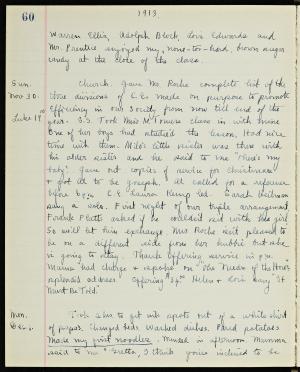 60
1913.
Warren Ellis, Adolph Block, Lois Edwards and
Mr. Prentice enjoyed my, none-too-hard, brown sugar
candy at the close of the class.
Sun.
Nov 30.
Luke 19
Church. Gave Mr. Roche complete list of the
three divisions of C.E. made on purpose to promote
Efficiency in our Society from now till end of the
year. S.S. Took Miss M
class in with mine
One of her boys had studied the lesson. Had nice
time with them. Milo's little sister was there with
his older sister and he said to me "She's my
baby". Gave out copies of service for Christmas
+ got ill to be Joseph. ill called for a
before 6 p.m. C.E. Laura Kemp led. Sarah Heilman
sang a solo. First night of our triple arrangement
Frank Platts asked if he couldn't sid with his girl
So will let him exchange. Mrs Roche isn't pleased to
be on a different side from her hubbie but she
is going to stay. Thank offering service in p.m.
Mama had charge + reported on "The Needs of the Hour"
splendid address. Offering $
Helen + Lois sang "It
Must Be Told."
Mon.
Dec 1.
Took a bis to get ink spots out of a white skirt
of
Changed beds. Washed dishes. Pared potatoes
Made my first noodles. Mended in afternoon. Mamma
said to me "Gretta, I think you're inclined to be